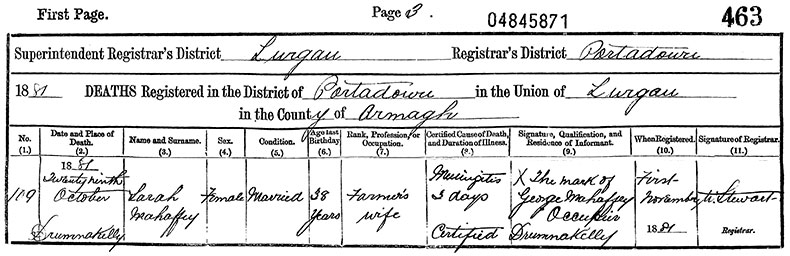 First Page. Page 3. 04845871 463
Superintendent Registrar's District Lurgan Registrar's District Portadown
1881 DEATHS Registered in the District of Portadown in the Union of Lurgan
in the County of Armagh
No. (1.) Date and Place of Death. (2.) Name and Surname. (3.) Sex. (4.) Condition. (5.) Age last Birthday (6.) Rank, Profession, or Occupation. (7.) Certified Cause of Death, and Duration of Illness. (8.) Signature, Qualification, and Residence of Informant. (9.) When Registered. (10.) Signature of Registrar. (11.)
109
1881
Twenty ninth
October
Drumnakelly
Sarah
Mahaffey
Female
Married
38
Years
Farmer's
wife
Meningitis
3 days
Certified
X The mark of
George Mahaffey
Occupier
Drumnakelly
First
November
1881
Stewart
Registrar.